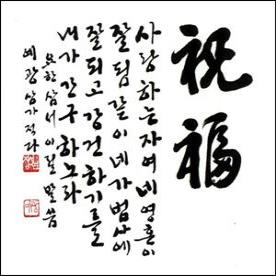 祝福
사랑하는 자여 네 영혼이
잘됨 같이 네가 범사에
잘되고 강건하기를
내가 간구하노라
요한삼서 이절 말씀
예광 삼가 적다